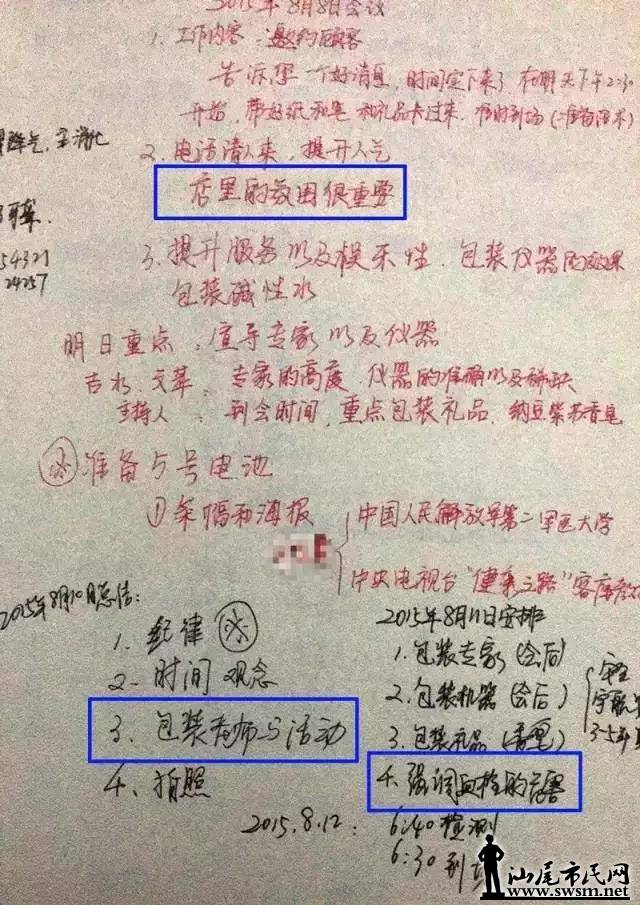 2015年8月8日会议
1. 工作内容：邀约顾客
告诉您一个好消息，时间定下来了 在明天下午2:30
开始，带好纸和笔 和礼品卡过来，准时到场
2. 电话请人来，提升人气
店里的氛围很重要
3. 提升服务以及娱乐性，包装仪器的效果
包装碱性水
明日重点：宣导专家以及仪器
吉水，文苹：专家的高度，仪器的准确以及稀缺
主持人：到会时间，重点包装礼品，纳豆 香皂
准备5号电池
① 条幅和海报
中国人民解放军第二军医大学
中央电视台"健康之路"客座
54321
24257
2015年8月10日总结：
1. 纪律
2. 时间观念
3. 包装老师与活动
4. 拍照
2015年8月11日安排
1. 包装专家（会后）
2. 包装机器（会后）
3. 包装礼品
4. 强调血栓的危害
3-5年
2015.8.12：6:40 检测
6:30 到
汕尾市民网
www.swsm.net